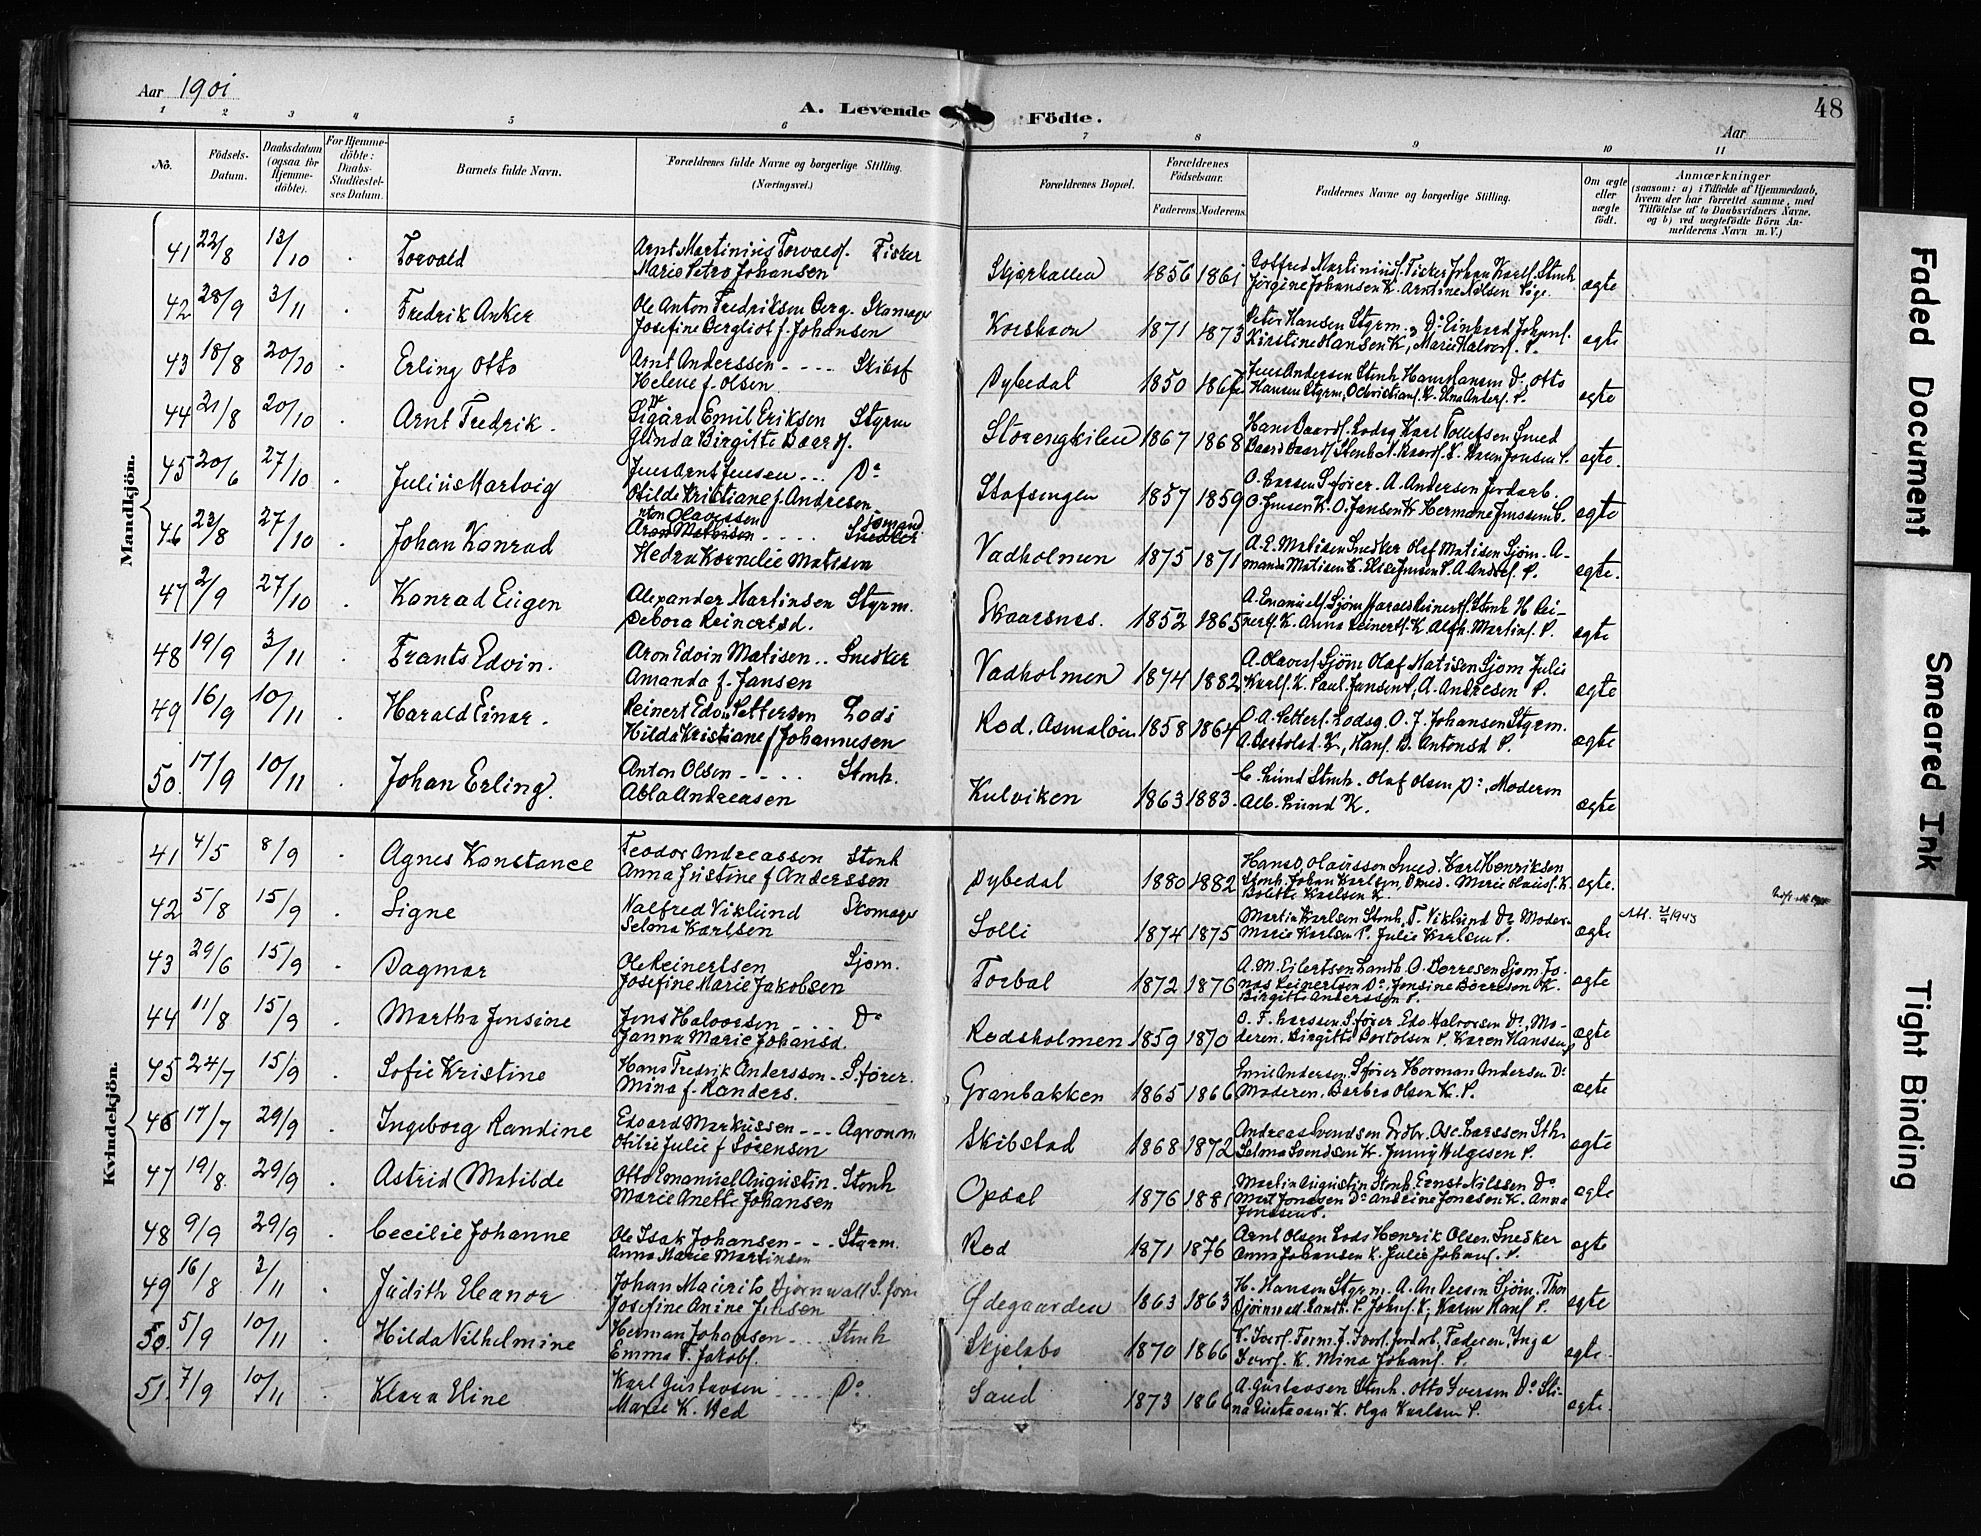 Aar 1901
A. Levende Födte.
48
Aar
1 2 3 4 5 6 7 8 9 10 11
No. Födsels-Datum. Daabsdatum (ogsaa for Hjemme-döbte). For Hjemme-döbte: Daabs-Stadfæstel-ses Datum. Barnets fulde Navn. Forældrenes fulde Navne og borgerlige Stilling. (Næringsvei.) Forældrenes Bopæl. Forældrenes Födselsaar. Faderens. Moderens. Faddernes Navne og borgerlige Stilling. Om ægte eller uægte födt. Anmærkninger (saasom: a) i Tilfælde af Hjemmedaab, hvem der har forrettet samme, med Tilföielse af to Daabsvidners Navne, og b) ved uægtefödte Börn An-melderens Navn m. V.)
Mandkjön.
41 22/8 13/10 Torvald Arnt Martinius Torvalds. Fisker
Marie Petra Johansen Skjærhallen 1856 1861 Gotfred Martinius. Fisker Johan Karls. Stenh
Jörgine Johansen K. Arntine Nilsen Pige. ægte
42 28/9 3/11 Fredrik Anker Ole Anton Fredriksen Berg. Skomager
Josefine Bergliot f. Johansen Korshavn 1871 1873 Peter Hansen Styrm., Do Einhard Johans.
Kirstine Hansen K, Marie Halvors. P. ægte
43 18/8 20/10 Erling Otto Arnt Anderssen - - - -
Helene f. Olsen Dybedal 1850 Jens Andersen Stenh. Hans Hansen Do, Otto
Hansen Styrm, O Christians. K. Ana Anders. P. ægte
44 21/8 20/10 Arnt Fredrik. Sigard Emil Eriksen Styrm
Gunda Birgitte Baards. Storengkilen 1867 1868 Hans Baards. Lodsg Karl Tollefsen Smed
Baard Baards Stenh. N. Baards. K. Karen Jonsen P. ægte.
45 20/6 27/10 Julius Hartvig Jens Arnt Jensen - - - Do
Otilde Kristiane f. Andresen Stafsengen 1857 1859 O. Larsen S förer. A. Andersen Jordarb.
O. Jensen K. O. Jansen K Hermane Jenssen P. ægte
46 23/8 27/10 Johan Konrad Anton Olavessen Sjömand
Aron Matisen - - - - Snedker
Hedra Kornelie Matisen Vadholmen 1875 1871 A. E. Matisen Snedker Olaf Matisen Sjöm. A-
manda Matisen K. Else Jensen P. A. Andres. P. ægte.
47 2/9 27/10 Konrad Eugen Alexander Martinsen Styrm.
Debora Reinertsd. Skaarsnes. 1852 1865 A. Emanuels. Sjöm Harald Reinerts. Stenh H Rei-
nerts. K. Anna Reinerts. K. Alfh. Martins. P. ægte
48 19/9 3/11 Frants Edvin. Aron Edvin Matisen .. Snedker
Amanda f. Jansen Vadholmen 1874 1882 A. Olaves. Sjöm Olaf Matisen Sjöm Julie
Karls. K. Paul Jansen P, A. Andresen P. ægte
49 16/9 10/11 Harald Einar. Reinert Edv. Pettersen Lods
Hilda Kristiane f Johannesen Rød. Asmaløen 1858 1864 O. A. Petters. Lodsg. O. J. Johansen Styrm.
A. Bertolsd. K, Hans. B. Antonsd P. ægte
50. 17/9 10/11 Johan Erling. Anton Olsen - - - - Stenh.
Abla Andreasen Kulviken 1863 1883. C. Lund Stenh. Olaf Olsen Do, Moderen
Alb. Lund K. ægte
Kvindekjön.
41 4/5 8/9 Agnes Konstance Teodor Andreassen Stenh
Anna Justine f Anderssen Dybedal 1880 1882 Hans O. Olaussen Smed. Karl Henriksen
Stenh. Johan Karlsen, Smed. Marie Klaus. K.
Bolette Karlsen K. ægte.
42 5/8 15/9 Signe Valfred Viklund Skomager
Selma Karlsen Solli 1874 1875 Martin Karlsen Stenh, F. Viklund Do Moder.
Marie Karlsen P. Julie Karlsen P. ægte Att. 21/9 1943
43 29/6 15/9 Dagmar Ole Reinertsen Sjøm.
Josefine Marie Jakobsen Torbal 1872 1876 A. M. Eilertsen Landb. O. Børresen Sjøm. Jo-
nas Reinertsen Do, Jensine Børresen K.
Birgitte Anderssen P. ægte
44 11/8 15/9 Martha Jensine Jens Halvorsen - - - Do
Janna Marie Johansd. Rødsholmen 1859 1870 O. F. Larssen S förer Edv Halvorsen Do, Mo-
deren. Birgitte Bertolsen P. Karen Hanssen P ægte
45 24/7 15/9 Sofie Kristine Hans Fredrik Andersson - S. fører.
Mina f. Randers. Granbakken 1865 1866 Emil Andersen. S fører Herman Andersen Do
Moderen. Barbra Olsen K. P. ægte
46 17/7 29/9 Ingeborg Randine Edvard Markussen - - - Agronom
Otilie Julie f Sörensen Skibstad 1868 1872 Andreas Svendsen Grdbr. Osc. Larssen Sth.
Selma Svendsen K. Jenny Helgesen P. ægte
47 19/8. 29/9 Astrid Matilde Otto Emanuel Augustin. Stenh
Marie Anette Johansen Opsal 1876 1881 Martin Augustin Stenh. Ernst Nilssen Do
Mart Jonesen Do Andrine Jonesen K. Anna
Jenssen P. ægte
48 9/9 29/9 Cecilie Johanne Ole Isak Johansen - - - Styrm.
Anna Marie Martinsen Rød 1871 1876 Arnt Olsen Lods Henrik Olsen Snedker
Anna Johansen K. Julie Johans. P. ægte
49 16/8 3/11 Judith Eleanor Johan Mauritz Bjørnwall S. fører
Josefine Anine Jensen Ødegaarden 1863 1863 H. Hansen Styrm. A. Andersen Sjøm. Thor
Bjørnwall. Landh. P. Johns. K, Karen Hans. P. ægte
50. 5/9 10/11 Hilda Vilhelmine Herman Johansen - - - Stenh
Emma F. Jakobs. Skjelsbo 1870 1866 K. Ivers. Form. J. Ivers. Jordarb. Faderen, Inga
Ivers. K. Mina Johans. P. ægte.
51 7/9 10/11 Klara Eline Karl Gustavsen - - - - Do.
Marie K. Hed Sand 1873 1866 A. Gustavsen Stenh. Otto Iversen Do Sti-
na Gustavsen K. Olga Karlsen P. ægte.
Faded Document
Smeared Ink
Tight Binding